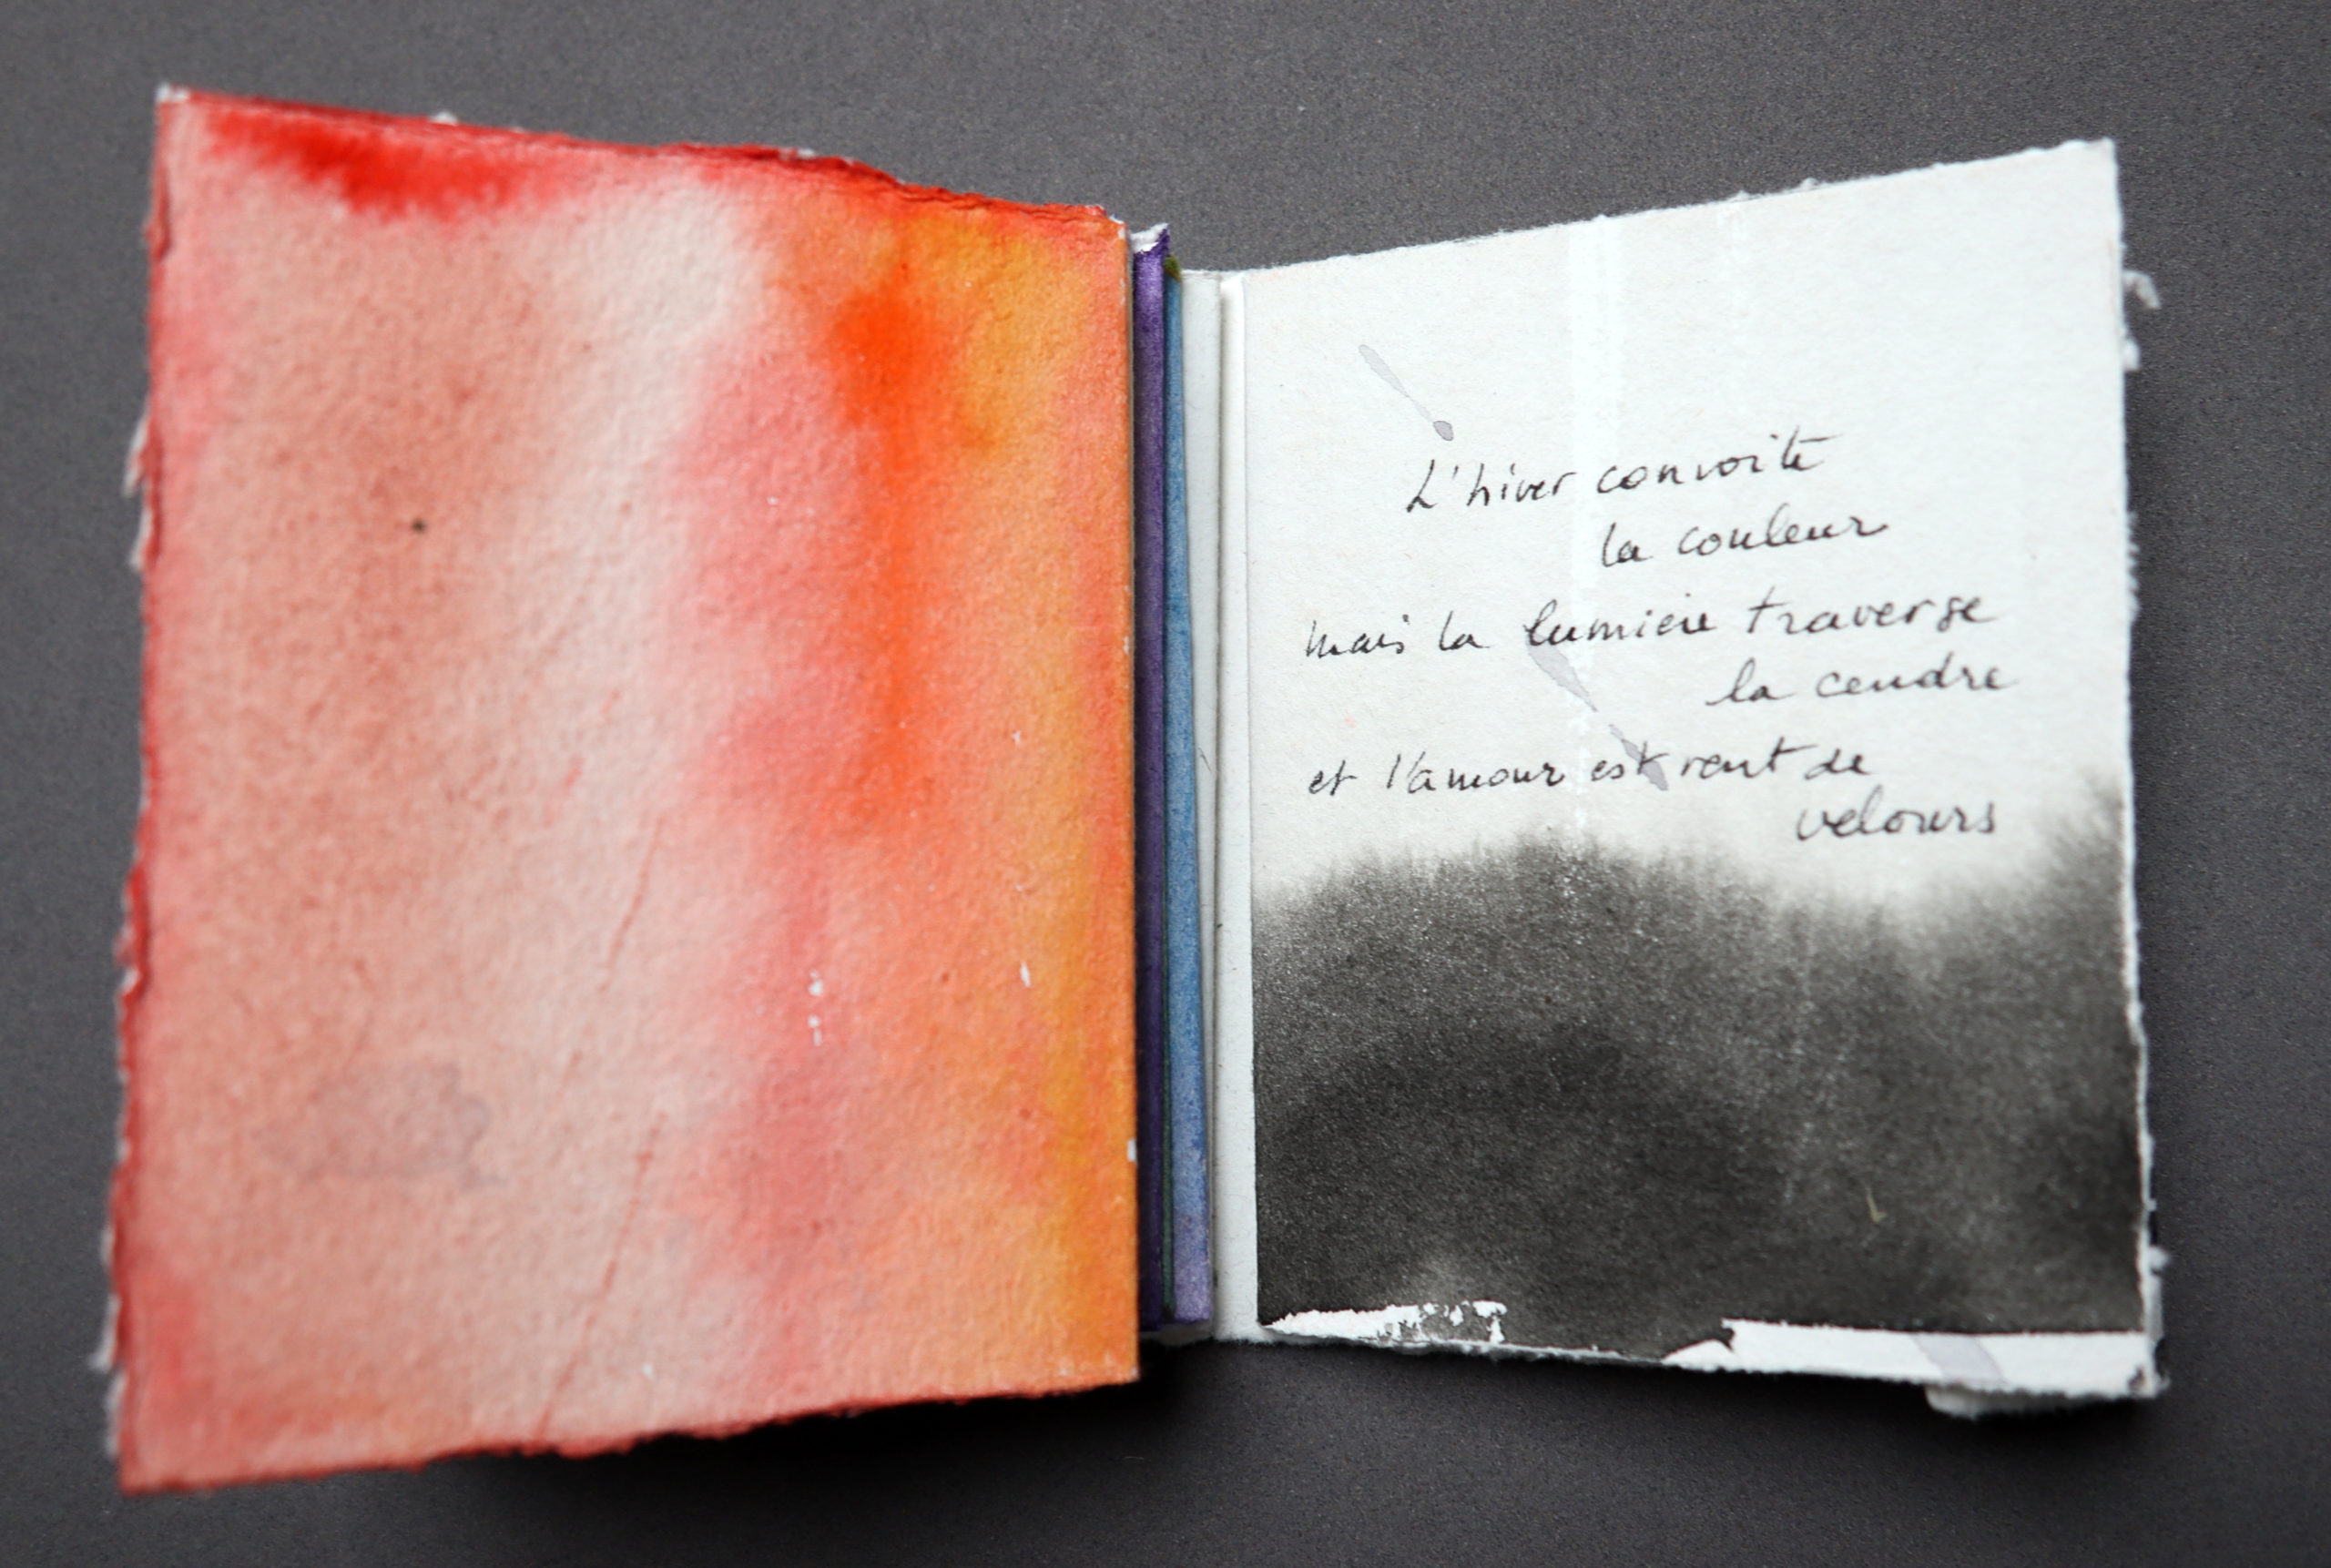 L'hiver convoite
la couleur
mais la lumière traverse
la cendre
et l'amour est vent de
velours